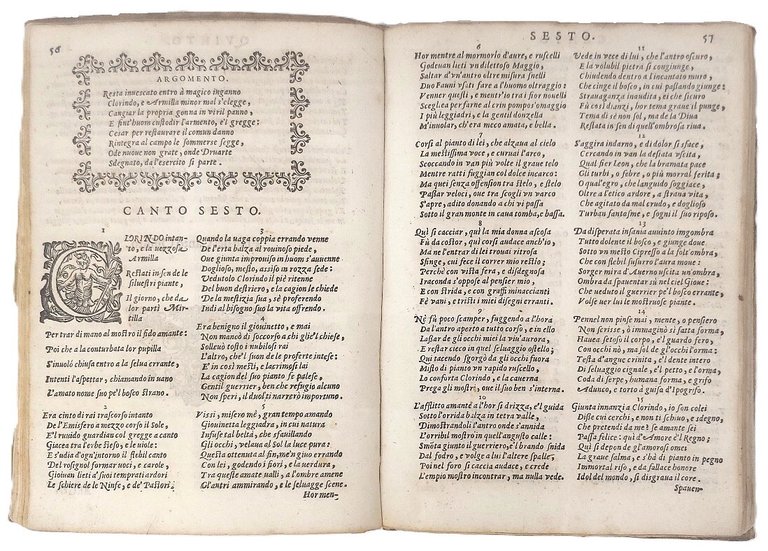 56
ARGOMENTO.
Resta inuescato entro à magico inganno
Clorindo, e Armilla minor mal s'elegge,
Cangiar la propria gonna in viril panno,
E fint'huom custodir l'armento, e'l gregge:
Cesar per restaurare il comun danno
Rintegra al campo le sommerse segge,
Ode nuoue non grate, onde Druarte
Sdegnato, da l'esercito si parte.
CANTO SESTO.
1
CLORINDO intanto, e la vezzosa
Armilla
Restati in sen de le
siluestri piante,
Il giorno, che da
lor partì Mirtilla
Per trar di mano al mostro il fido amante:
Poi che a la conturbata lor pupilla
S'inuolò chiusa entro a la selua errante,
Intenti l'aspettar, chiamando in vano
L'amato nome suo pe'l bosco strano.
2
Era cinto di rai trascorso intanto
De l'Emisfero a mezzo corso il Sole,
E'l ruuido guardian col gregge a canto
Giacea tra l'erbe steso, e le viole:
Es'udia d'ogn'intorno il flebil canto
De' rosignol formar voci, e carole,
Gioiuan lieti a' suoi temprati ardori
Le schiere de le Ninfe, e de' Pastori.
3
Quando la vaga coppia errando venne
De l'erta balza al rouinoso piede,
Oue giunta improuiso in huom s'auuenne
Doglioso, mesto, assiso in rozza sede:
Volò presta Clorindo il piè ritenne
Del buon destriero, e la cagion le chiede
De la mestizia sua, sè proferendo
Indi al bisogno suo la vita offrendo.
4
Era benigno il giouinetto, e mai
Non mancò di soccorso a chi glie'l chiese,
Solleuò tosto i nubilosi rai
L'altro, che'l suon de le proferte intese:
E'in così mesti, e lacrimosi lai
La cagion del suo pianto fe palese,
Gentil guerrier, ben che refugio alcuno
Non speri, il duol ti narrerò importuno.
5
Vissi, misero mè, gran tempo amando
Giouinetta leggiadra, in cui natura
Infuse tal beltà, che sfauillando
Gli occhi, velana al sol la luce pura:
Questa ottenuta al fin, me'n giuo errando
Con lei, godendo i fiori, e la verdura,
Tra queste amate valli, a l'ombre amene
Gl'antri ammirando, e le seluagge scene.
Hor men-
SESTO.
57
6
Hor mentre al mormorio d'aure, e ruscelli
Godeuam lieti vn dilettoso Maggio,
Saltar d'vn'antro oltre misura snelli
Duo Fauni vsati fare a l'huomo oltraggio:
Venner questi, e mentr'io trai fior nouelli
Sceglea per farne al crin pompos'omaggio
I più leggiadri, e la gentil donzella
M'inuolar, ch'era meco amata, e bella.
7
Corsi al pianto di lei, che alzaua al cielo
La mestissima voce, e curuai l'arco,
Scoccando in van più volte il graue telo
Mentre ratti fuggian col dolce incarco:
Ma quei senza offension tra stelo, e stelo
Passar veloci, oue tra scogli vn varco
S'apre, adito donando a chi vi passa
Sotto il gran monte in caua tomba, e bassa.
8
Quì si cacciar, quì la mia donna ascosa
Fù da costor, quì corsi audace anch'io,
Ma ne l'entrar di lei trouai ritrosa
Sfinge, cui fece il correr mio restio;
Perchè con vista fera, e disdegnosa
Iraconda s'oppose al pensier mio,
E con gli stridi, e con graffi minaccianti
Fè vani, e tristi i miei disegni erranti.
9
Nè fù poco scamper, fuggendo a l'hora
Da l'antro aperto a tutto corso, e in ello
Lassar de gli occhi miei la viu'aurora,
E restar cieco in quel seluaggio ostello;
Qui tacendo sgorgò da gli occhi fuora
Misto di pianto vn rapido ruscello,
Lo conforta Clorindo, e la cauerna
Prega gli mostri, oue il suo ben s'interna.
10
L'afflitto amante a l'hor si drizza, e'l guida
Sotto l'orrida balza in tetra valle,
Dimostrandoli l'antro onde s'annida
L'orribil mostro in quell'angusto calle:
Smota giunto il guerriero, e'l brando snida
Dal fodro, e volge a lui l'altere spalle,
Poi nel foro si caccia audace, e crede
L'empio mostro incontrar, ma nulla vede.
11
Vede in vece di lui, che l'antro oscuro,
E la volubil pietra si congiunge,
Chiudendo dentro a l'incantato muro,
Che cinge il bosco, in cui passando giunge:
Strauaganza inaudita, ei che sicuro
Fù così dianzi, hor tema graue il punge,
Tema di sè non sol, ma de la Diua
Restata in sen di quell'ombrosa riua.
12
S'aggira indarno, e di dolor si sface,
Cercando in van la desiata vscita,
Qual fier Leon, che la bramata pace
Gli turbi, o febre, o più mortal ferita;
O qual'egro, che languido soggiace
Oltre a l'etico ardore, a strania vita,
Che agitato da mal crudo, e doglioso
Turban fantasme, e sogni il suo riposo.
13
Da disperata insania auuinto imgombra
Tutto dolente il bosco, e giunge doue
Sotto vn mesto Cipresso a la folt'ombra,
Che con flebil susurro l'aura moue:
Sorger mira d'Auerno vscita vn'ombra,
Ombra da spauentar sù nel ciel Gioue:
Che veduto il guerrier pe'l bosco errante,
Volse ver lui le mostruose piante.
14
Pennel non pinse mai, mente, o pensiero
Non scrisse, ò immaginò sì fatta forma,
Hauea setoso il corpo, e'l guardo fero,
Con occhi nò, ma fol de gl'occhi l'orma:
Testa d'angue crinita, e'l dente intero
Di seluaggio cignale, e'l petto, e l'orma
Coda di serpe, humana forma, e grifo
Adunco, e torto à guisa d'Ipogrifo.
15
Giunta innanzia Clorindo, io son colei
Disse cui cerchi, e non conosci, e sdegno,
Che pretendi da me? se amante sei
Passa felice: qui d'Amore è'l Regno;
Qui si depon de gl'amorosi omei
La graue salma, e s'hà di pianto in pegno
Immortal riso, e da fallace honore
Idol del mondo, si disgraua il core.
Spauen-